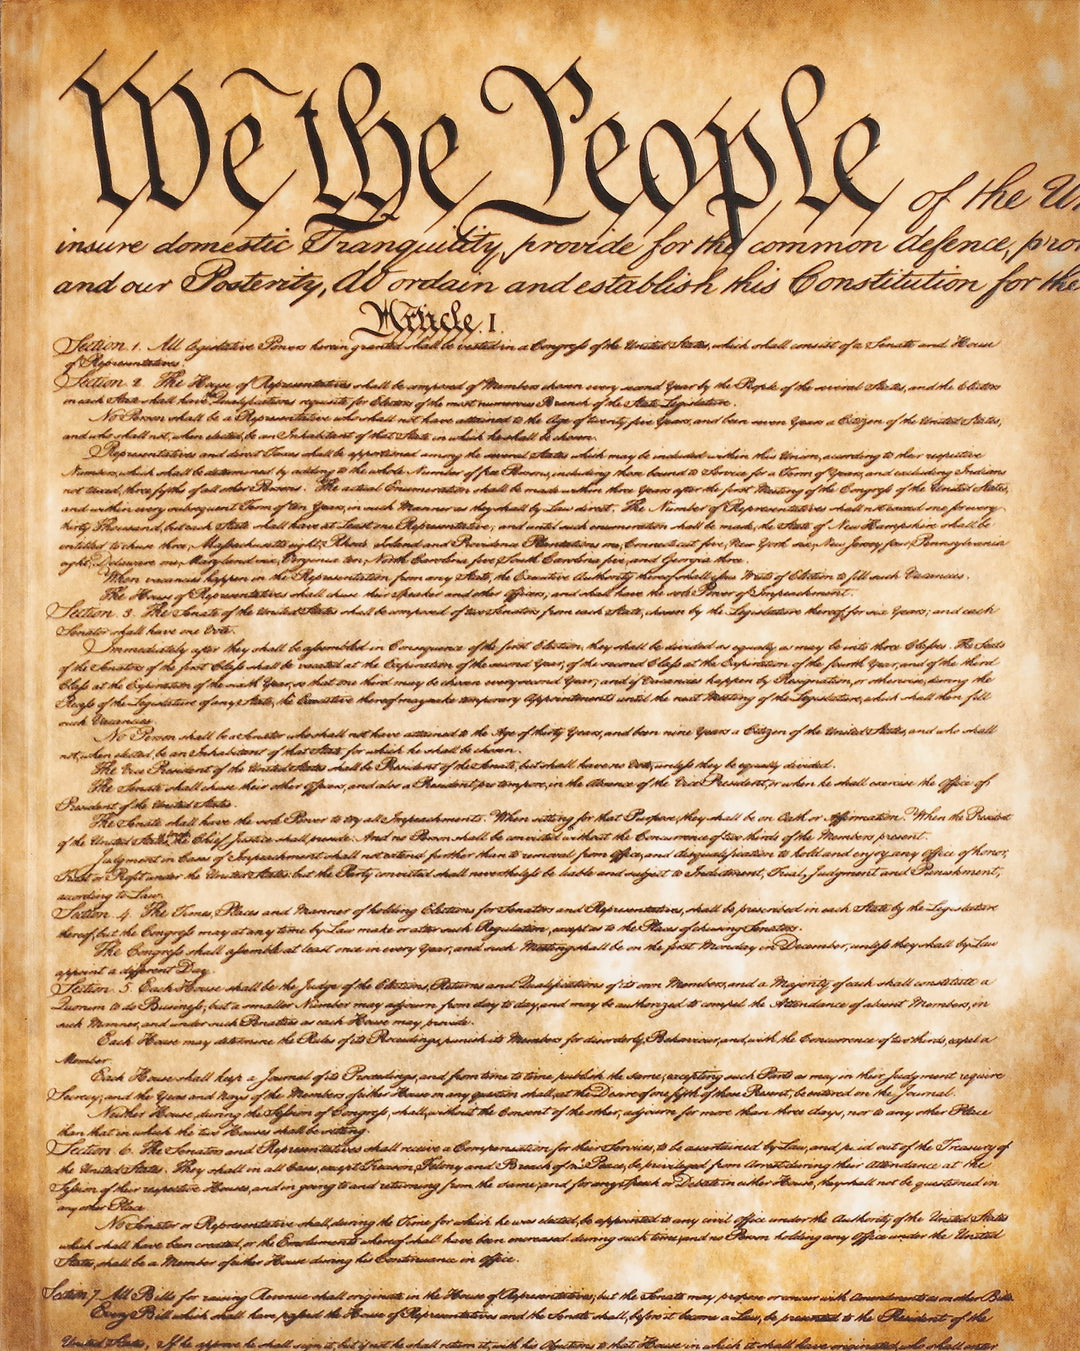 We the People of the Un
insure domestic Tranquility, provide for the common defence, pro
and our Posterity, do ordain and establish this Constitution for the
Article. I.
Section. 1. All legislative Powers herein granted shall be vested in a Congress of the United States, which shall consist of a Senate and House
of Representatives.
Section. 2. The House of Representatives shall be composed of Members chosen every second Year by the People of the several States, and the Electors
in each State shall have Qualifications requisite for Electors of the most numerous Branch of the State Legislature.
No Person shall be a Representative who shall not have attained to the Age of twenty five Years, and been seven Years a Citizen of the United States,
and who shall not, when elected, be an Inhabitant of that State in which he shall be chosen.
Representatives and direct Taxes shall be apportioned among the several States which may be included within this Union, according to their respective
Numbers, which shall be determined by adding to the whole Number of free Persons, including those bound to Service for a Term of Years, and excluding Indians
not taxed, three fifths of all other Persons. The actual Enumeration shall be made within three Years after the first Meeting of the Congress of the United States,
and within every subsequent Term of ten Years, in such Manner as they shall by Law direct. The Number of Representatives shall not exceed one for every
thirty Thousand, but each State shall have at Least one Representative; and until such enumeration shall be made, the State of New Hampshire shall be
entitled to chuse three, Massachusetts eight, Rhode Island and Providence Plantations one, Connecticut five, New York six, New Jersey four, Pennsylvania
eight, Delaware one, Maryland six, Virginia ten, North Carolina five, South Carolina five, and Georgia three.
When vacancies happen in the Representation from any State, the Executive Authority thereof shall issue Writs of Election to fill such Vacancies.
The House of Representatives shall chuse their Speaker and other Officers; and shall have the sole Power of Impeachment.
Section. 3. The Senate of the United States shall be composed of two Senators from each State, chosen by the Legislature thereof, for six Years; and each
Senator shall have one Vote.
Immediately after they shall be assembled in Consequence of the first Election, they shall be divided as equally as may be into three Classes. The Seats
of the Senators of the first Class shall be vacated at the Expiration of the second Year, of the second Class at the Expiration of the fourth Year, and of the third
Class at the Expiration of the sixth Year, so that one third may be chosen every second Year; and if Vacancies happen by Resignation, or otherwise, during the
Recess of the Legislature of any State, the Executive thereof may make temporary Appointments until the next Meeting of the Legislature, which shall then fill
such Vacancies.
No Person shall be a Senator who shall not have attained to the Age of thirty Years, and been nine Years a Citizen of the United States, and who shall
not, when elected, be an Inhabitant of that State for which he shall be chosen.
The Vice President of the United States shall be President of the Senate, but shall have no Vote, unless they be equally divided.
The Senate shall chuse their other Officers, and also a President pro tempore, in the Absence of the Vice President, or when he shall exercise the Office of
President of the United States.
The Senate shall have the sole Power to try all Impeachments. When sitting for that Purpose, they shall be on Oath or Affirmation. When the President
of the United States, the Chief Justice shall preside: And no Person shall be convicted without the Concurrence of two thirds of the Members present.
Judgment in Cases of Impeachment shall not extend further than to removal from Office, and disqualification to hold and enjoy any Office of honor,
Trust or Profit under the United States: but the Party convicted shall nevertheless be liable and subject to Indictment, Trial, Judgment and Punishment,
according to Law.
Section. 4. The Times, Places and Manner of holding Elections for Senators and Representatives, shall be prescribed in each State by the Legislature
thereof; but the Congress may at any time by Law make or alter such Regulations, except as to the Places of chusing Senators.
The Congress shall assemble at least once in every Year, and such Meeting shall be on the first Monday in December, unless they shall by Law
appoint a different Day.
Section. 5. Each House shall be the Judge of the Elections, Returns and Qualifications of its own Members, and a Majority of each shall constitute a
Quorum to do Business; but a smaller Number may adjourn from day to day, and may be authorized to compel the Attendance of absent Members, in
such Manner, and under such Penalties as each House may provide.
Each House may determine the Rules of its Proceedings, punish its Members for disorderly Behaviour, and, with the Concurrence of two thirds, expel a
Member.
Each House shall keep a Journal of its Proceedings, and from time to time publish the same, excepting such Parts as may in their Judgment require
Secrecy; and the Yeas and Nays of the Members of either House on any question shall, at the Desire of one fifth of those Present, be entered on the Journal.
Neither House, during the Session of Congress, shall, without the Consent of the other, adjourn for more than three days, nor to any other Place
than that in which the two Houses shall be sitting.
Section. 6. The Senators and Representatives shall receive a Compensation for their Services, to be ascertained by Law, and paid out of the Treasury of
the United States. They shall in all Cases, except Treason, Felony and Breach of the Peace, be privileged from Arrest during their Attendance at the
Session of their respective Houses, and in going to and returning from the same; and for any Speech or Debate in either House, they shall not be questioned in
any other Place.
No Senator or Representative shall, during the Time for which he was elected, be appointed to any civil Office under the Authority of the United States
which shall have been created, or the Emoluments whereof shall have been encreased during such time; and no Person holding any Office under the United
States, shall be a Member of either House during his Continuance in Office.
Section. 7. All Bills for raising Revenue shall originate in the House of Representatives; but the Senate may propose or concur with Amendments as on other Bills.
Every Bill which shall have passed the House of Representatives and the Senate, shall, before it become a Law, be presented to the President of the
United States; If he approve he shall sign it, but if not he shall return it, with his Objections to that House in which it shall have originated, who shall enter